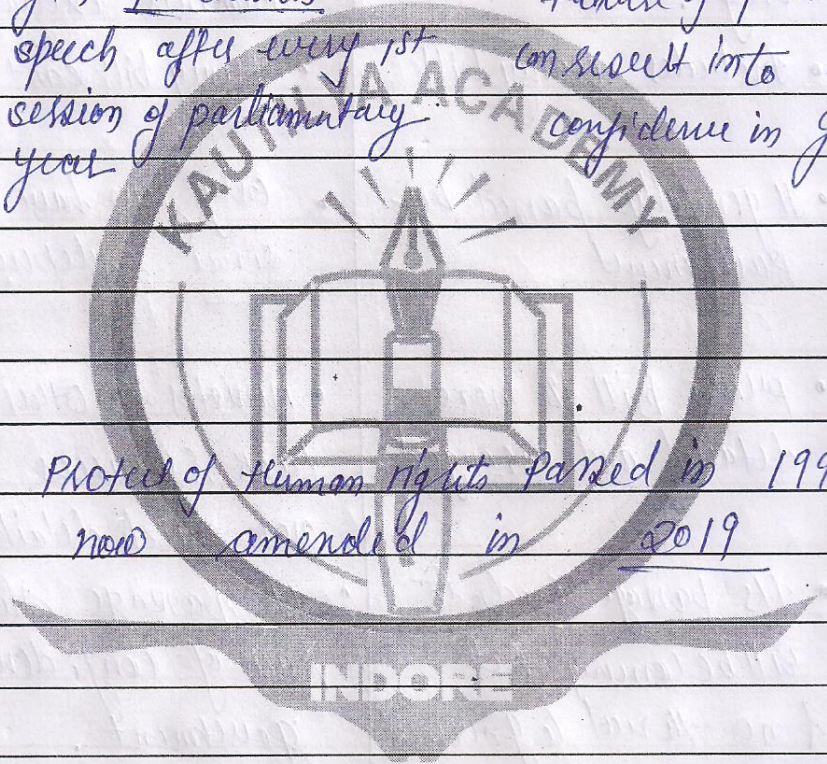 speech after every 1st can result into
session of parliamentary confidence in
year
KAUTILYA ACADEMY
Protect of Human rights Passed in 199
now amended in 2019
INDORE